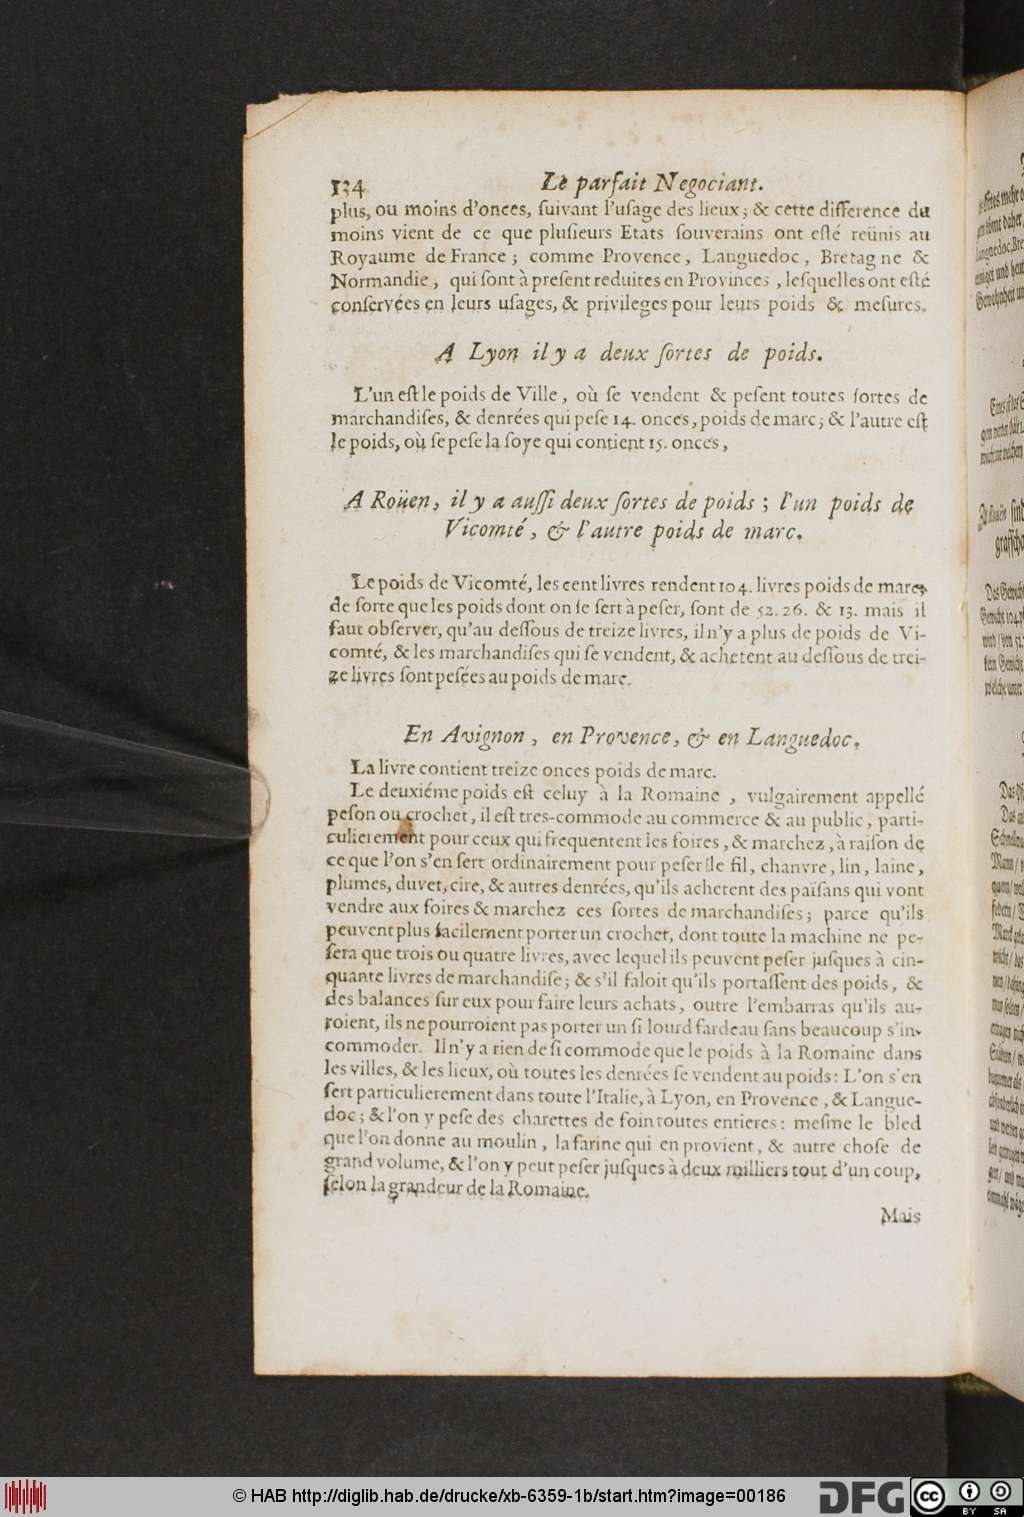 134 Le parfait Negociant.
plus, ou moins d'onces, ſuivant l'uſage des lieux; & cette difference du
moins vient de ce que pluſieurs Etats ſouverains ont eſté reünis au
Royaume de France; comme Provence, Languedoc, Bretagne &
Normandie, qui ſont à preſent reduites en Provinces, leſquelles ont eſté
conſervées en leurs uſages, & privileges pour leurs poids & meſures.
A Lyon il y a deux ſortes de poids.
L'un eſt le poids de Ville, où ſe vendent & peſent toutes ſortes de
marchandiſes, & denrées qui peſe 14. onces, poids de marc; & l'autre eſt
le poids, où ſe peſe la ſoye qui contient 15. onces,
A Roüen, il y a auſſi deux ſortes de poids; l'un poids de
Vicomté, & l'autre poids de marc.
Le poids de Vicomté, les cent livres rendent 104. livres poids de marc,
de ſorte que les poids dont on ſe ſert à peſer, ſont de 52. 26. & 13. mais il
faut obſerver, qu'au deſſous de treize livres, il n'y a plus de poids de Vi-
comté, & les marchandiſes qui ſe vendent, & achetent au deſſous de trei-
ze livres ſont peſées au poids de marc.
En Avignon, en Provence, & en Languedoc.
La livre contient treize onces poids de marc.
Le deuxiéme poids eſt celuy à la Romaine, vulgairement appellé
peſon ou crochet, il eſt tres-commode au commerce & au public, parti-
culierement pour ceux qui frequentent les foires, & marchez, à raiſon de
ce que l'on s'en ſert ordinairement pour peſer le fil, chanvre, lin, laine,
plumes, duvet, cire, & autres denrées, qu'ils achetent des païſans qui vont
vendre aux foires & marchez ces ſortes de marchandiſes; parce qu'ils
peuvent plus facilement porter un crochet, dont toute la machine ne pe-
ſera que trois ou quatre livres, avec lequel ils peuvent peſer juſques à cin-
quante livres de marchandiſe; & s'il faloit qu'ils portaſſent des poids, &
des balances ſur eux pour faire leurs achats, outre l'embarras qu'ils au-
roient, ils ne pourroient pas porter un ſi lourd fardeau ſans beaucoup s'in-
commoder. Il n'y a rien de ſi commode que le poids à la Romaine dans
les villes, & les lieux, où toutes les denrées ſe vendent au poids: L'on s'en
ſert particulierement dans toute l'Italie, à Lyon, en Provence, & Langue-
doc; & l'on y peſe des charettes de foin toutes entieres: meſme le bled
que l'on donne au moulin, la farine qui en provient, & autre choſe de
grand volume, & l'on y peut peſer juſques à deux milliers tout d'un coup,
ſelon la grandeur de la Romaine.
Mais
© HAB http://diglib.hab.de/drucke/xb-6359-1b/start.htm?image=00186
DFG
cc BY SA